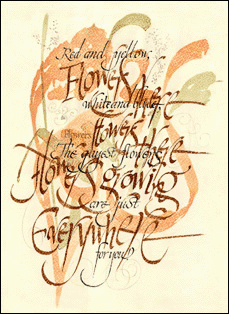 Red and yellow,
Flowers here
white and blue
Flowers
flowers there
The gayest flowers
Flowers growing
are just
Everywhere
for you!